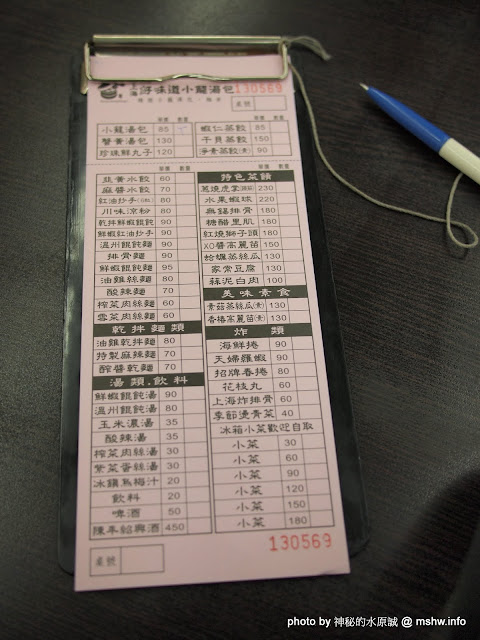 上海 好味道小籠湯包 130569
桌號
單價 數量 單價 數量
小籠湯包 85 蝦仁蒸餃 85
蟹黃湯包 130 干貝蒸餃 150
珍珠鮮丸子 120 淨素蒸餃(素) 90
單價 數量 單價 數量
韭黃水餃 60
麻醬水餃 70
紅油抄手 60
川味涼粉 80
乾拌鮮蝦餛飩 90
鮮蝦紅油抄手 90
溫州餛飩麵 90
排骨麵 90
鮮蝦餛飩麵 95
油雞絲麵 80
酸辣麵 70
榨菜肉絲麵 60
雪菜肉絲麵 60
乾拌麵類
油雞乾拌麵 80
特製麻辣麵 70
酢醬乾麵 70
湯類.飲料
鮮蝦餛飩湯 90
溫州餛飩湯 80
玉米濃湯 35
酸辣湯 35
榨菜肉絲湯 30
紫菜蛋絲湯 30
冰鎮烏梅汁 20
飲料 20
啤酒 50
陳年紹興酒 450
特色菜餚
蔥燒虎掌 230
水果蝦球 220
無錫排骨 180
糖醋里肌 180
紅燒獅子頭 180
XO醬高麗苗 150
蛤蠣蒸絲瓜 130
家常豆腐 130
蒜泥白肉 100
美味素食
素菇蒸絲瓜(素) 130
香椿高麗苗(素) 130
炸 類
海鮮捲 90
天婦羅蝦 90
招牌春捲 80
花枝丸 60
上海炸排骨 60
季節燙青菜 40
冰箱小菜歡迎自取
小菜 30
小菜 60
小菜 90
小菜 120
小菜 150
小菜 180
130569
桌號
photo by 神秘的水原誠 @ mshw.info